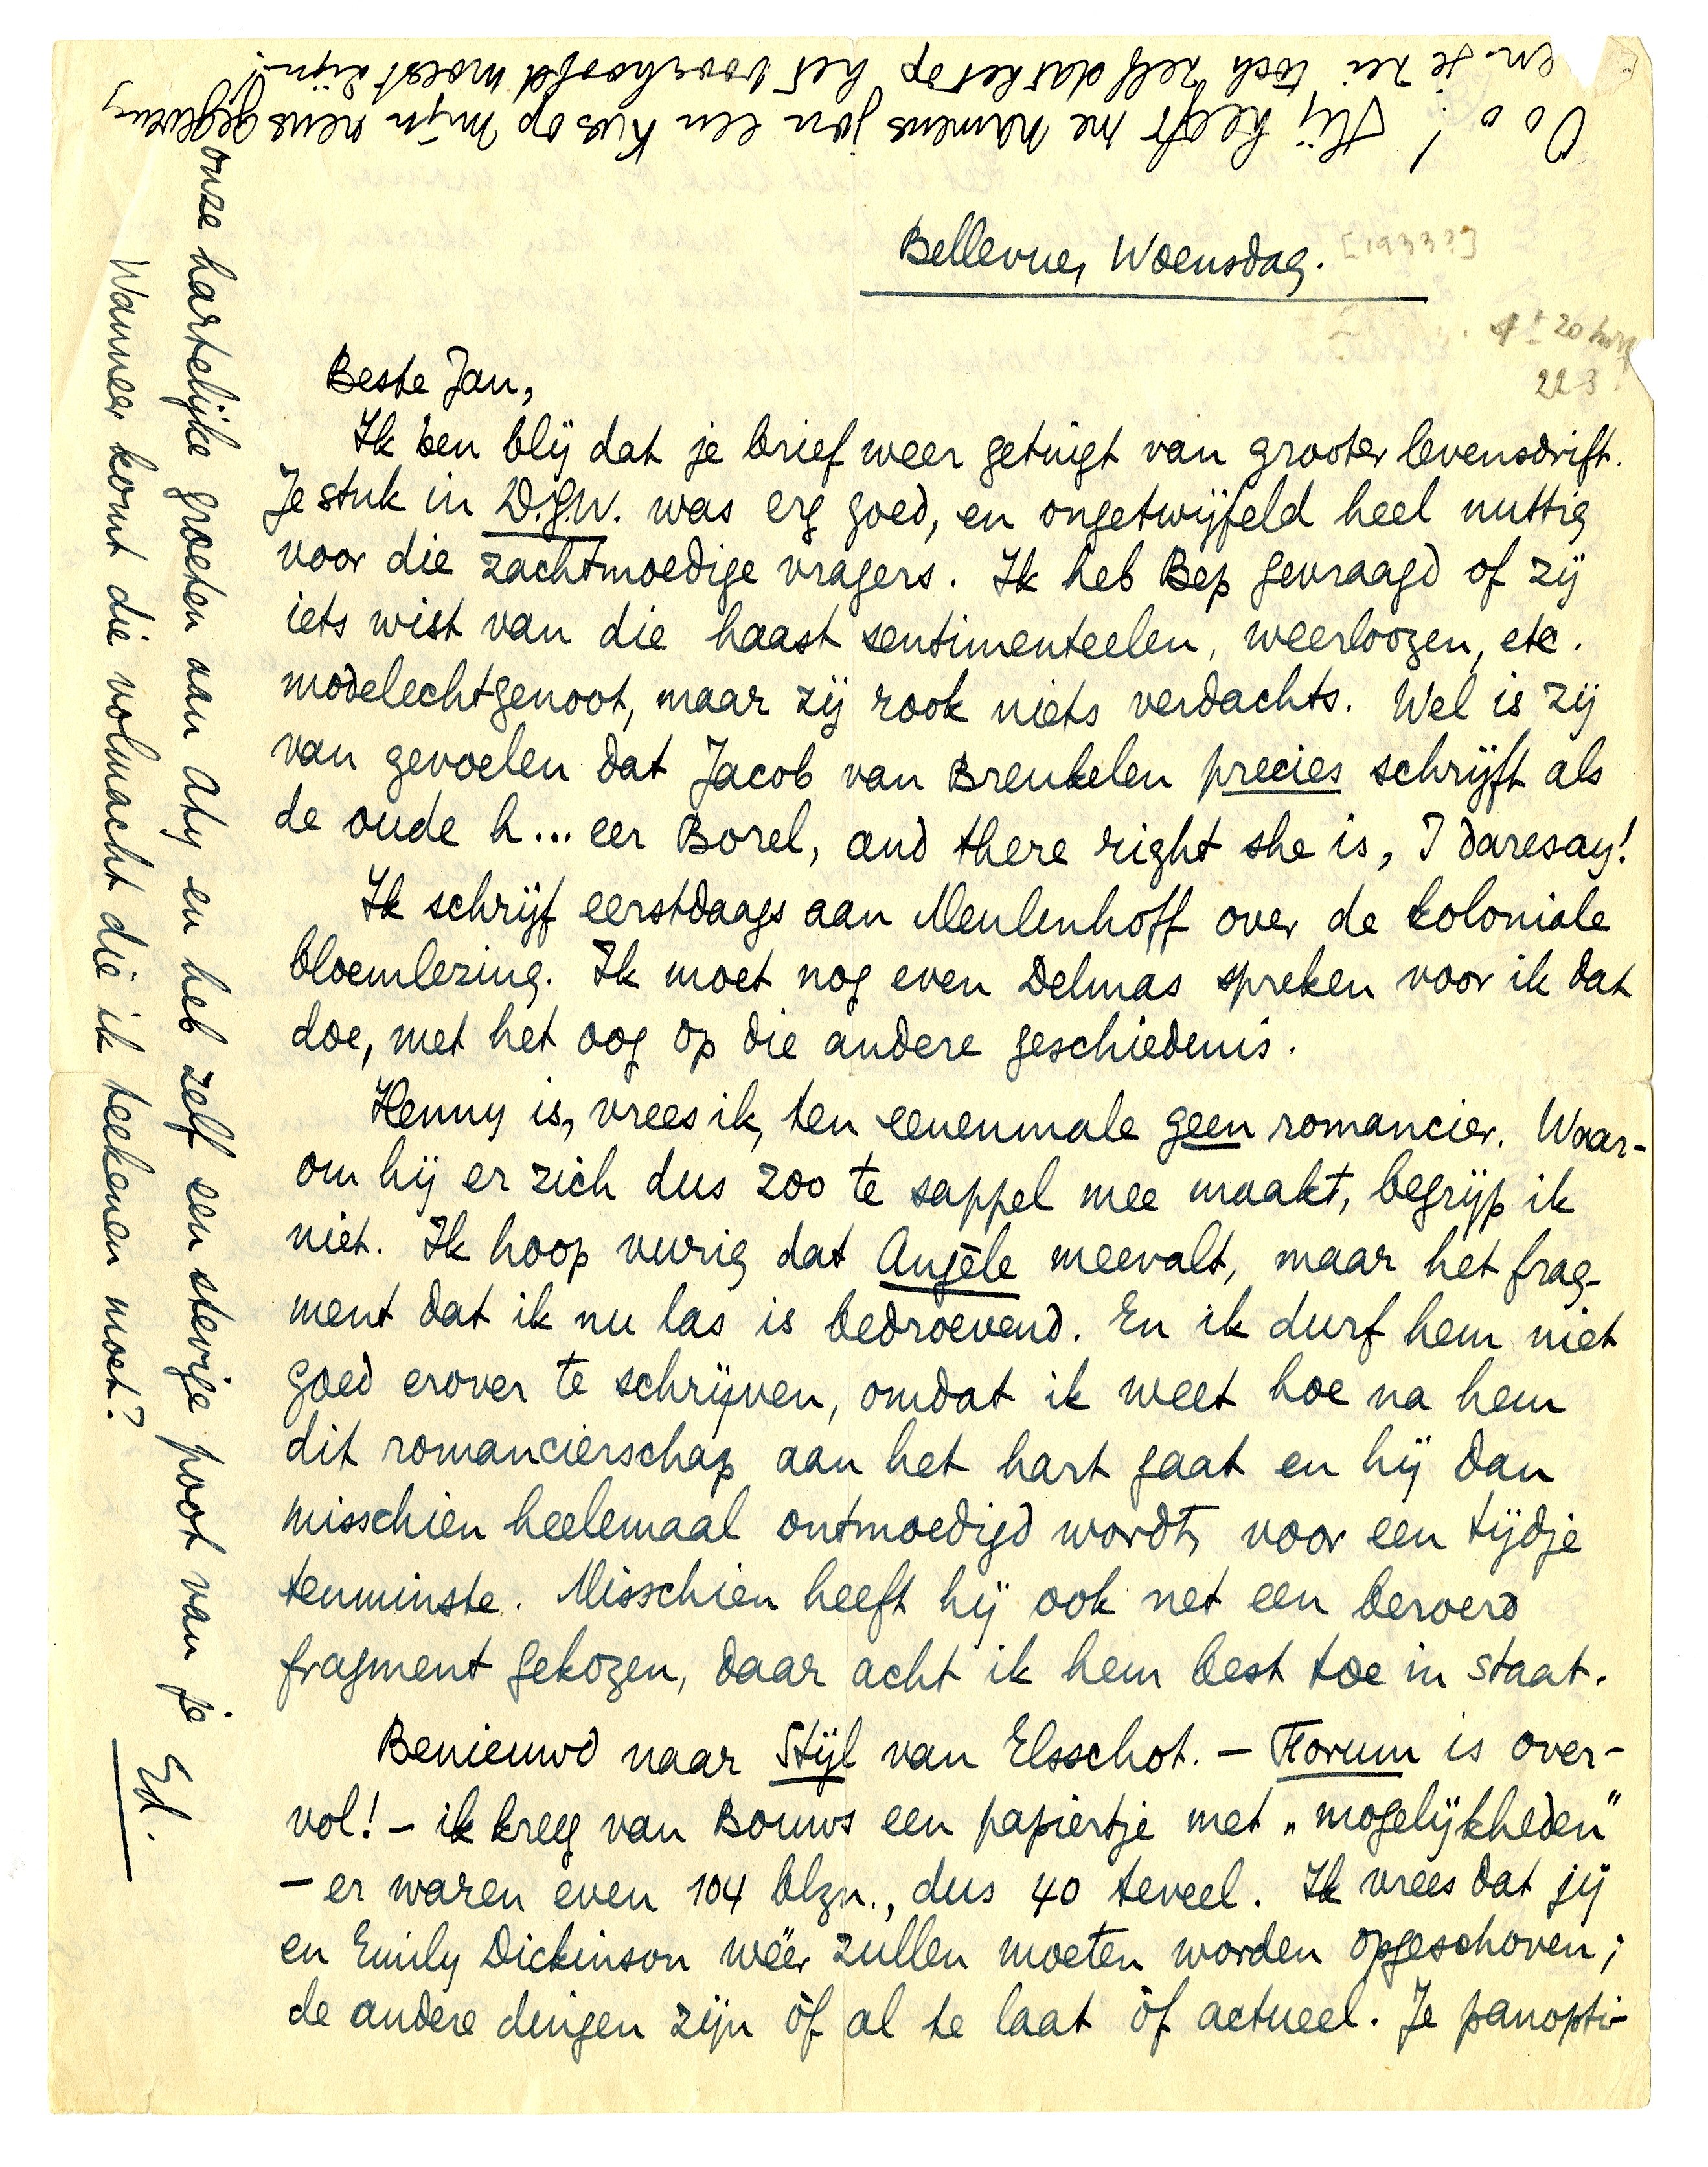 Bellevue, Woensdag.
[1933?]
22 3
Beste Jan,
Ik ben blij dat je brief weer getuigt van grooter levensdrift.
Je stuk in D.G.W. was erg goed, en ongetwijfeld heel nuttig
voor die zachtmoedige vragers. Ik heb Bep gevraagd of zij
iets wist van die haast sentimenteelen, weerloozen, etc.
modelechtgenoot, maar zij rook niets verdachts. Wel is zij
van gevoelen dat Jacob van Breukelen precies schrijft als
de oude h...eer Borel, and there right she is, I daresay!
Ik schrijf eerstdaags aan Meulenhoff over de koloniale
bloemlezing. Ik moet nog even Delmas spreken voor ik dat
doe, met het oog op die andere geschiedenis.
Henny is, vrees ik, ten eenenmale geen romancier. Waar-
om hij er zich dus zoo te sappel mee maakt, begrijp ik
niet. Ik hoop vurig dat Angèle meevalt, maar het frag-
ment dat ik nu las is bedroevend. En ik durf hem niet
goed erover te schrijven, omdat ik weet hoe na hem
dit romancierschap aan het hart gaat en hij dan
misschien heelemaal ontmoedigd wordt, voor een tijdje
tenminste. Misschien heeft hij ook net een beroerd
fragment gekozen, daar acht ik hem best toe in staat.
Benieuwd naar Stijl van Elsschot. - Forum is over-
vol! - ik kreeg van Bouws een papiertje met „mogelijkheden"
- er waren even 104 blzn., dus 40 teveel. Ik vrees dat jij
en Emily Dickinson wéér zullen moeten worden opgeschoven;
de andere dingen zijn òf al te laat òf actueel. Je panopti-
onze hartelijke groeten aan Aty en heb zelf een stevige poot van je
Ed.
Wanneer komt die volmacht die ik teekenen moet?
Ooo! Hij heeft me namens jou een kus op mijn neus gegeven,
en je zei toch zelf dat het op het voorhoofd moest zijn!